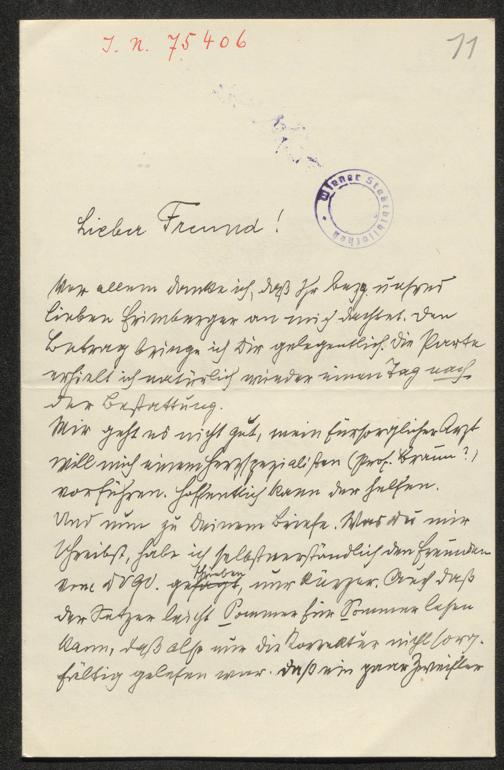 I. N. 75406
11
Wiener Stadtbibliothek
Lieber Freund!
Vor allem danke ich, daß Ihr bezg. unsres
lieben Grimberger an mich dachtet. Den
Betrag bringe ich Dir gelegentlich. Die Parte
erhielt ich natürlich wieder einen Tag nach
der Bestattung.
Mir geht es nicht gut, mein fürsorglicher Arzt
will mich einem Herzspezialisten (Prof. Braun?)
vorführen. Hoffentlich kann der helfen.
Und nun zu Deinem Briefe. Was Du mir
schreibst, habe ich selbstverständlich den Freunden
vom geschrieben, nur kürzer. Auch daß
der Setzer leicht Pommer für Sommer lesen
kann, daß also nur die Korrektur nicht sorg-
fältig gelesen war. Daß ein paar Zweifler